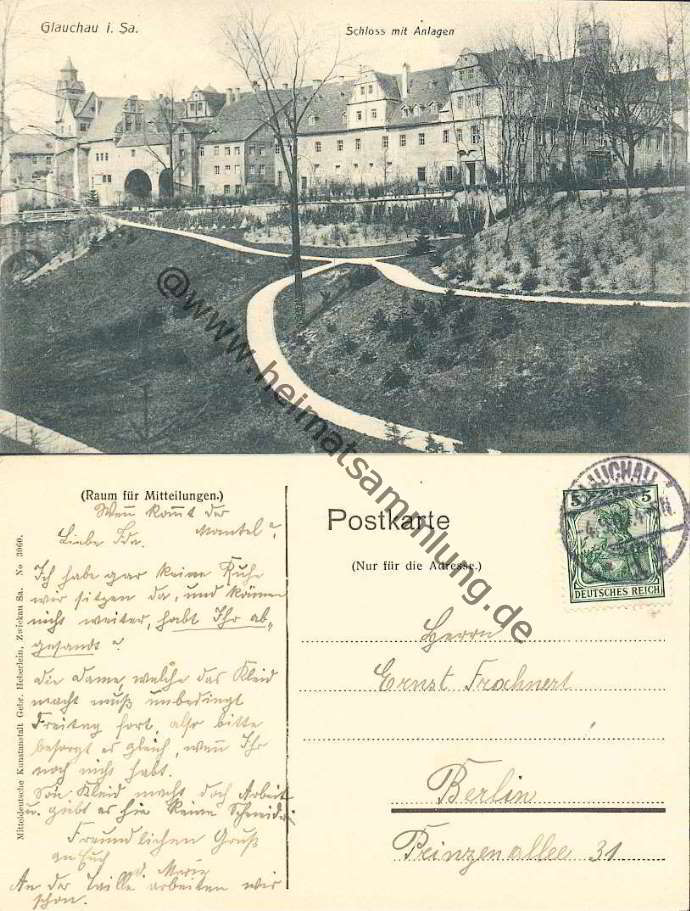 Glauchau i. Sa.
Schloss mit Anlagen
@www.heimatsammlung.de
(Raum für Mitteilungen.)
Wen komt der
Mantel?
Liebe Ida.
Ich habe gar keine Ruhe
wir sitzen da, und können
nicht weiter, habt Ihr ab-
gesandt?
die Dame, welche das Kleid
macht muß unbedingt
Freitag fort, also bitte
besorgt es gleich, wen Ihr
noch nicht habt.
Son Kleid macht doch Arbeit
u. gibt es hie keine
Freundlichen Gruß
an Euch
d. Marie
An der Taille arbeiten wir
schon.
Mitteldeutsche Kunstanstalt Gebr. Heberlein, Zwickau Sa. No 3060.
Postkarte
(Nur für die Adresse.)
GLAUCHAU
5 5
DEUTSCHES REICH
Herrn
Ernst Frohnert
Berlin
Prinzenallee 31.